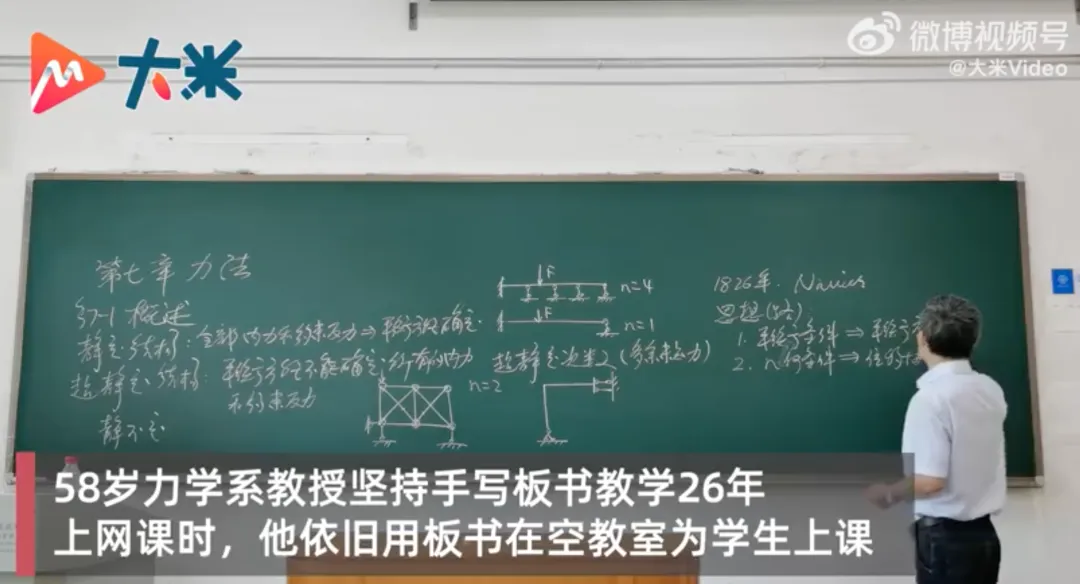 大米
微博视频号
@大米Video
第七章 力法
§7-1 概述
静定结构：全部内力和约束反力⇒平衡方程确定.
超静定结构：平衡方程不能确定所有的内力
和约束反力
静不定
F
n=4
F
n=1
超静定次数 (多余约束力)
n=2
1826年. Navier
思想
1. 平衡条件 ⇒ 平衡方
2. 几何条件 ⇒
58岁力学系教授坚持手写板书教学26年
上网课时，他依旧用板书在空教室为学生上课